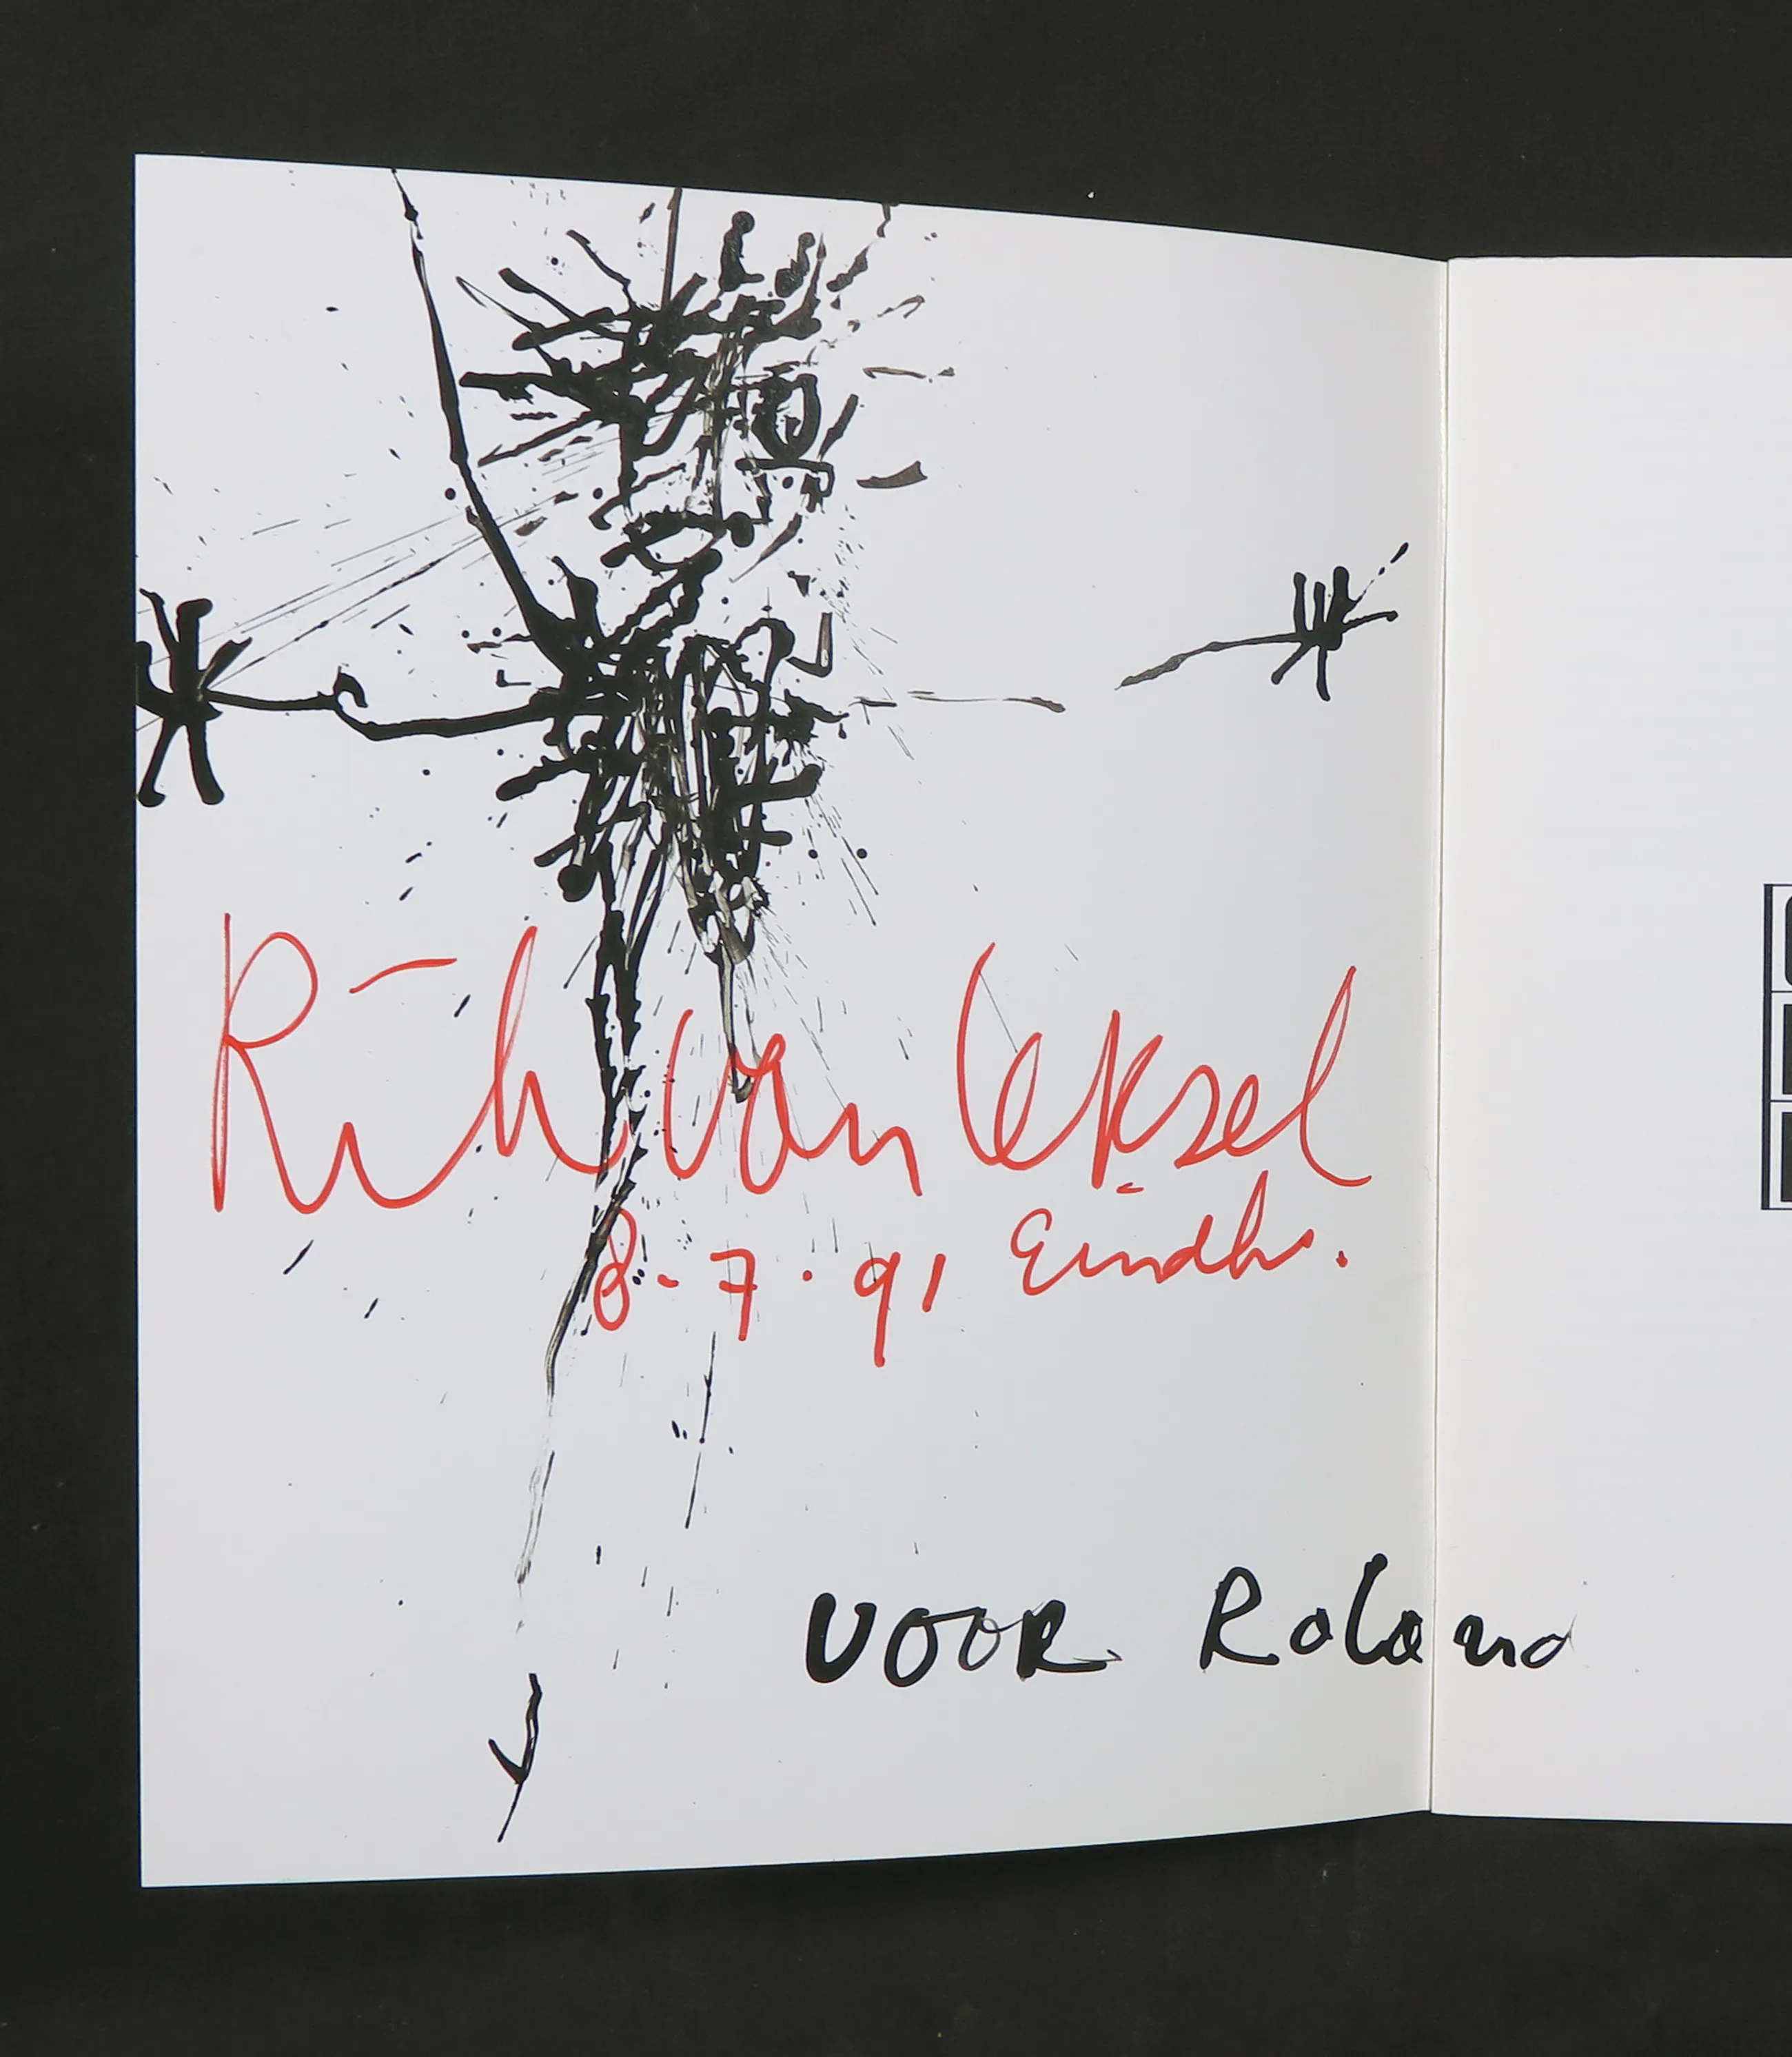 Rik van Iersel
8-7.91 Eindh.
VOOR Roland